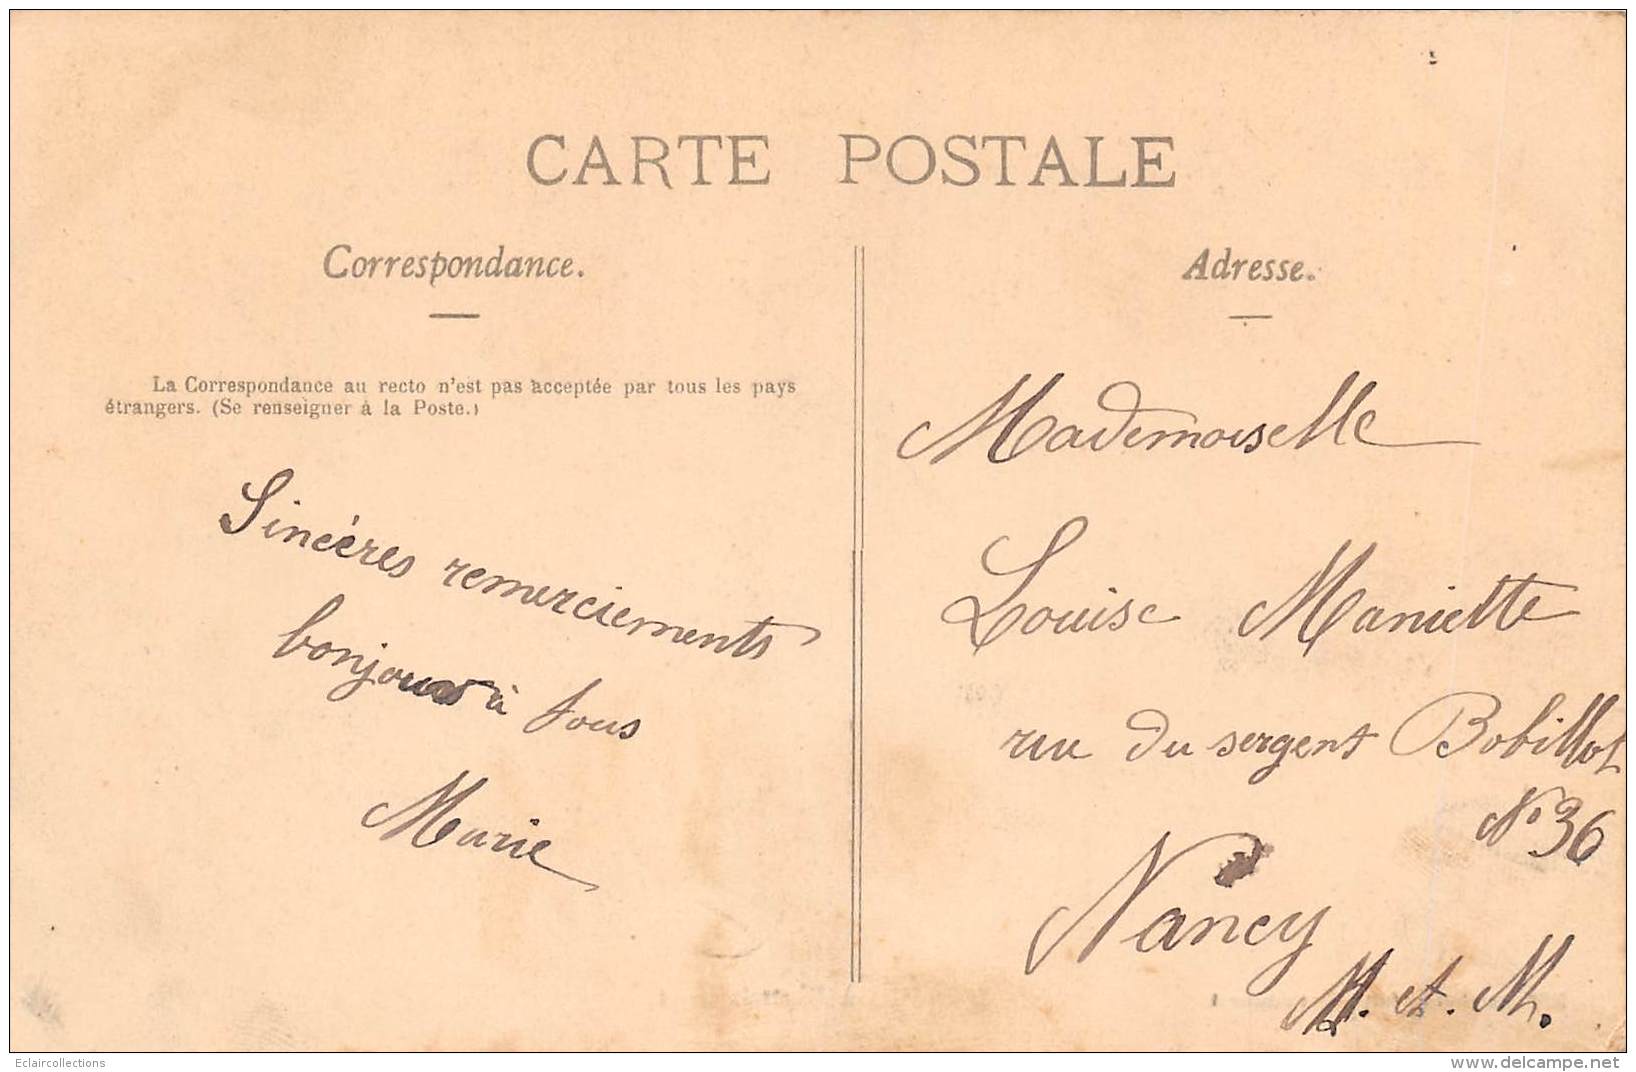 CARTE POSTALE
Correspondance.
La Correspondance au recto n'est pas acceptée par tous les pays
étrangers. (Se renseigner à la Poste.)
Sincères remerciements
bonjour à tous
Marie
Adresse.
Mademoiselle
Louise Maniette
rue du sergent Bobillot
N° 36
Nancy
M. et M.
Eclaircollections
www.delcampe.net